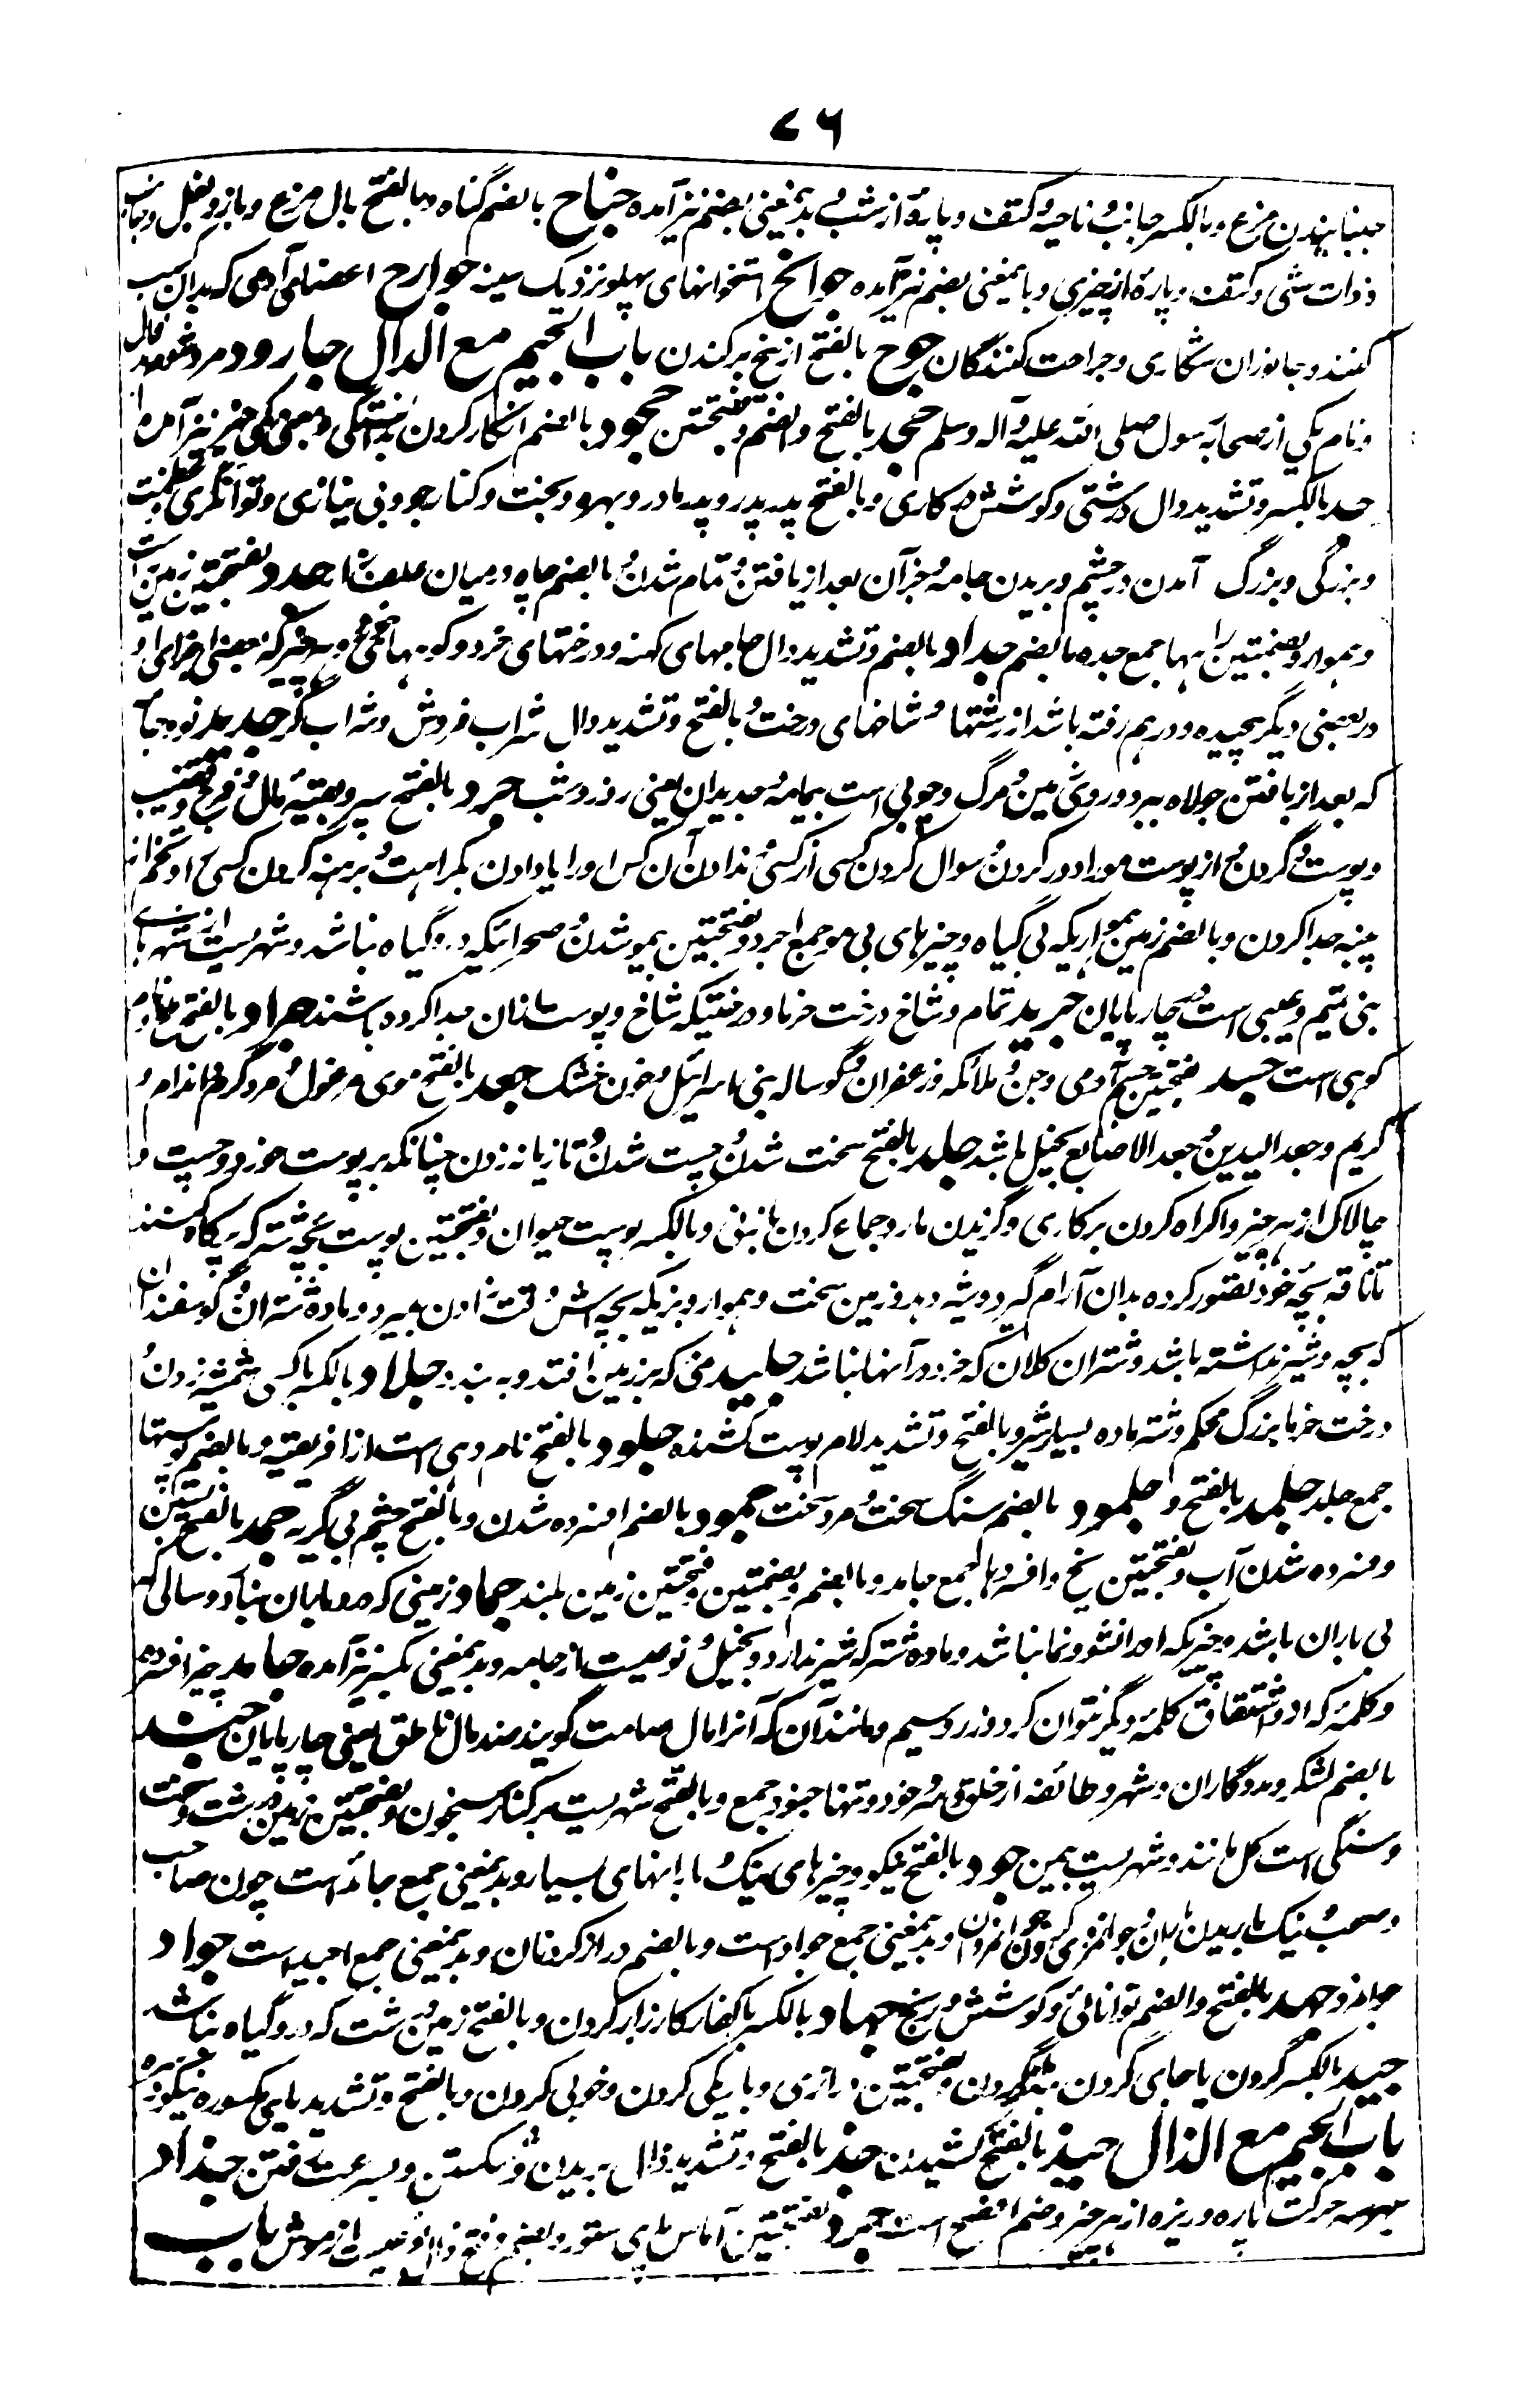 ۷۶
جنبانیدن مرغ و بالکسر جانب و ناحیه و کنف و پارهٔ از شب و بدیمعنی بضم نیز آمده جناح بالضم گناه و بالفتح بال مرغ و بازو و بغل و جانب
و ذات شی و کنف و پارهٔ از چیزی و باینمعنی بضم نیز آمده جوانح استخوانهای پهلو نزدیک سینه جوارح اعضای آدمی که بدان کسب
کنند و جانوران شکاری و جراحت کنندگان جوح بالفتح از بیخ برکندن باب الجیم مع الدال جارود مرد شوم
و نام یکی از صحابه رسول صلی الله علیه و آله وسلم جحد بالفتح والضم و بفتحتین جحود بالضم انکار کردن بدانستگی و بمعنی کمی خیر نیز آمده
جد بالکسر و تشدید دال درشتی و کوشش در کاری و بالفتح پدر پدر و پدر مادر و بهره و بخت و کنار جو و بی نیازی و توانگری و عظمت
و بزرگی و بزرگ آمدن در چشم و بریدن جامه و جز آن بعد از یافتن و تمام شدن و بالضم چاه در میان علف زار جدد بفتحتین زمین سخت
و هموار و بضمتین راهها جمع جده بالضم جداد بالضم و تشدید دال جامهای کهنه و درختهای خرد و کوههای و هر چیز که بعضی اجزای او
در بعضی دیگر پیچیده و در هم رفته باشد از رشتها و شاخهای درخت و بالفتح و تشدید دال شراب فروش و شراب گر جدید نو و جامهٔ
که بعد از بافتن جولاه ببرد و روی زمین و مرگ و جویی است بیمامه جدیدان یعنی روز و شب جرد بالفتح سپر و بقیهٔ مال و فرج و قضیب
و پوست گردن و از پوست مو را دور کردن و سوال کردن کسی از کسی و ندادن آن کس او را یا دادن بکراهت و برهنه کردن کسی را و تخم از
پنبه جدا کردن و بالضم زمین همواریکه بی گیاه و چیزهای بی مو جمع اجرد و بفتحتین بیمو شدن و صحرائیکه درو گیاه نباشد و شهریست از شهرهای
بنی تمیم و عیبی است در چارپایان جرید تمام و شاخ درخت خرما و درختیکه شاخ و پوست ازان جدا کرده باشند جراد بالفتح ملخ و نام
کوهی است جسد بفتحتین جسم آدمی و جن و ملائکه و زعفران و گوساله بنی اسرائیل و خون خشک جعد بالفتح موی مرغول و مرد گرد اندام و
کریم و جعد الیدین و جعد الاصابع بخیل باشد جلد بالفتح سخت شدن و چست شدن و تازیانه زدن چنانکه بر پوست خورد و چست و
چالاک از هر چیز و اکراه کردن بر کاری و گزیدن مار و جماع کردن با زن و بالکسر پوست حیوان و بفتحتین پوست بچه شتر که پر کاه کنند
تا ناقه بچه خود تصور کرده بدان آرام گیرد و شیر دهد و زمین سخت و هموار و بزیکه بچه اش وقت زادن بمیرد و ماده شتران و گوسفندان
که بچه و شیر نداشته باشد و شتران کلان که خرد در آنها نباشد جلید نمی که بر زمین افتد و به بندد جلاد بالکسر با کسی شمشیر زدن و
درخت خرما بزرگ محکم و شتر ماده بسیار شیر و بالفتح و تشدید لام پوست کشنده جلود بالفتح نام دهی است از افریقیه و بالضم پوستها
جمع جلد جلمد بالفتح و جلمود بالضم سنگ سخت و مرد سخت جمود بالضم افسرده شدن و بالفتح چشم بی گریه جمد بالفتح بستن
و فسرده شدن آب و بفتحتین یخ و افسرده جمع جامد و بالضم و بضمتین و بفتحتین زمین بلند جماد زمینی که درو باران نباشد و سالی که
بی باران باشد و چیزیکه او را نشو و نما نباشد و ماده شتر که شیر ندارد و بخیل و نوعیست از جامه و بدیمعنی بکسر نیز آمده جامد چیز افسرده
و کلمهٔ که ازو اشتقاق کلمهٔ دیگر نتوان کرد و زر و سیم و مانند آن که آنرا مال صامت گویند ضد مال ناطق یعنی چارپایان جند
بالضم لشکر و مددگاران و شهر و طائفه از خلق و تنها جنود جمع و بالفتح شهریست بر کنار سیحون و بفتحتین زمین درشت و سخت
و سنگی است گل مانند و شهریست بیمن جود بالفتح نیکو و چیزهای نیک و بارانهای بسیار و بدیمعنی جمع جائد است چون صاحب
و صحب و نیک باریدن باران و جوانمردی کردن و جوانمردان و بدیمعنی جمع جواد است و بالضم دراز گردنان و بدیمعنی جمع اجید است جواد
جوانمرد جهد بالفتح والضم توانائی و کوشش و رنج جهاد بالکسر با کفار کارزار کردن و بالفتح زمین درشت که درو گیاه نباشد
جید بالکسر گردن یا جای گردن بند گردن و بفتحتین درازی و باریکی گردن و خوبی گردن و بالفتح و تشدید یای مکسوره نیکو و سره
باب الجیم مع الذال جبذ بالفتح کشیدن جذ بالفتح و تشدید ذال بریدن و شکستن و بسرعت رفتن جذاذ
بهرسه حرکت پاره و ریزه از هر چیز و ضم افصح است جرذ بفتحتین آماس پای ستور و بضم و فتح ذال نوعیست از موش باب